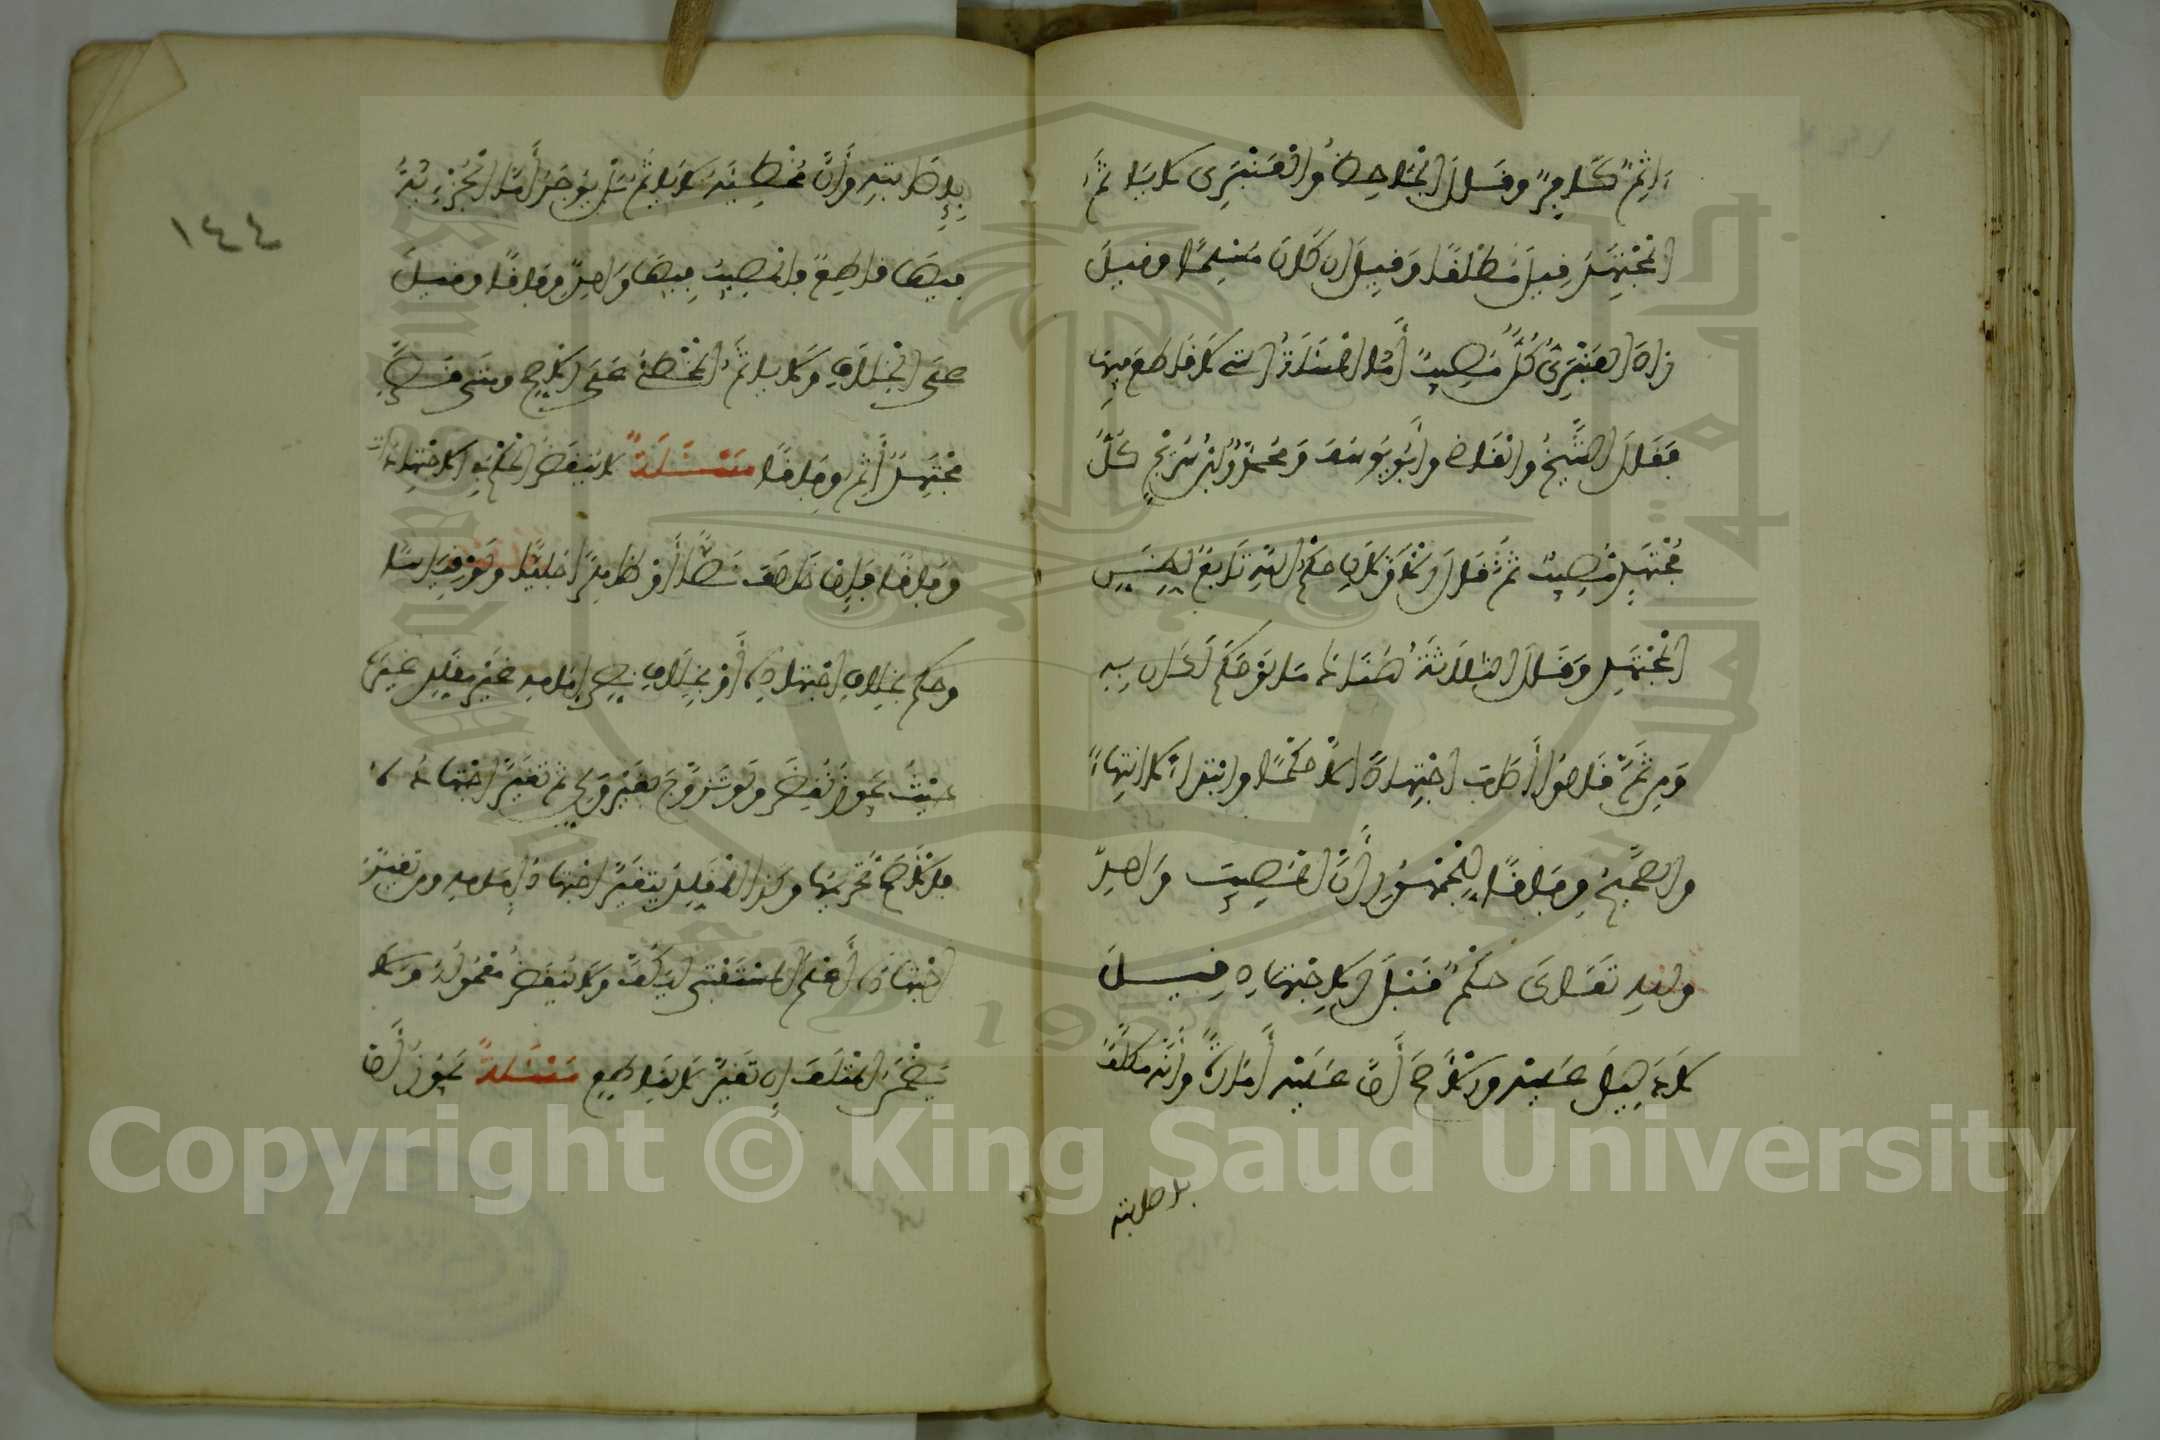 ءَاثِمٌ كَافِرٌ وقَالَ الْجَاحِظُ والْعَنْبَرِى لَا يَاثَمُ
الْمُجْتَهِدُ قِيلَ مُطْلَقًا وَقِيلَ إن كَانَ مُسْلِمًا وقيلَ
زادَ العَنْبَرِىُّ كُلٌّ مُصِيبٌ أَمَّا الْمَسْأَلَةُ التي لَا قاطِعَ فِيهَا
فَقَالَ الشَّيْخُ والْقَاضي وأَبُو يُوسُفَ وَمُحَمَّدٌ وابْنُ سُرَيْجٍ كُلُّ
مُجْتَهِدٍ مُصِيبٌ ثُمَّ قالَ الْأَوَّلَانِ حُكْمُ اللهِ تَابِعٌ لِظَنِّ
الْمُجْتَهِدِ وَقَالَ الثلَاثَةُ هُنَا مَا لَوْ حَكَمَ لَكَانَ بِهِ
وَمِن ثَمَّ قَالُوا أَصَابَ اجْتِهادًا لَا حُكْمًا وابْتِدَاءً لا انْتِهاءً
والصَّحِيحُ وِفَاقًا لِلْجُمْهُورِ أَنَّ الْمُصِيبَ وَاحِدٌ
وللهِ تَعَالَى حُكْمٌ قَبْلَ الِاجْتِهادِ قِيلَ
لَا دَلِيلَ عَلَيْهِ والْأَصَحُّ أَنَّ عَلَيْهِ أَمَارَةً وأَنَّهُ مُكَلَّفٌ
بإصابته
بِإِصَابَتِهِ وأَنَّ مُخْطِئَهُ لَا يَاثَمُ بَلْ يُوجَرُ أَمَّا الْجُزْئِيَّةُ
فيهَا قاطِعٌ فالْمُصِيبُ فِيهَا وَاحِدٌ وِفَاقًا وقيلَ
عَلَى الْخِلَافِ وَلَا يَاثَمُ الْمُخْطِئُ عَلَى الْأَصَحِّ ومَتَى قَصَّرَ
مُجْتَهِدٌ أَثِمَ وِفَاقًا مَسْأَلَةٌ لا يُنْقَضُ الْحُكْمُ في الِاجْتِهادِيَّاتِ
وِفَاقًا فإن خَالَفَ نَصًّا أَوْ ظاهِرًا جَلِيًّا ولَوْ قِيَاسًا
وحَكَمَ بخِلَافِ اجْتِهادِهِ أَوْ بِخِلَافِ نصِّ إمَامِهِ غَيْرَ مُقَلِّدٍ غَيْرَهُ
حَيْثُ يَجُوزُ نُقِضَ ولَوْ تَزَوَّجَ بغَيْرِ وَلِيٍّ ثم تَغَيَّرَ اجْتِهادُهُ
فالْأَصَحُّ تَحْرِيمُهَا وكذا الْمُقَلِّدُ يَتَغَيَّرُ اجْتِهادُ إمَامِهِ ومَن تَغَيَّرَ
اجْتِهادُهُ أَعْلَمَ الْمُسْتَفْتِيَ لِيَكُفَّ وَلَا يُنْقَضُ مَعْمُولُهُ وَلَا
يَضْمَنُ الْمُتْلَفَ إن تَغَيَّرَ لَا لِقاطِعٍ مَسْأَلَةٌ يَجُوزُ أَن
١٤٤
Copyright © King Saud University
1957